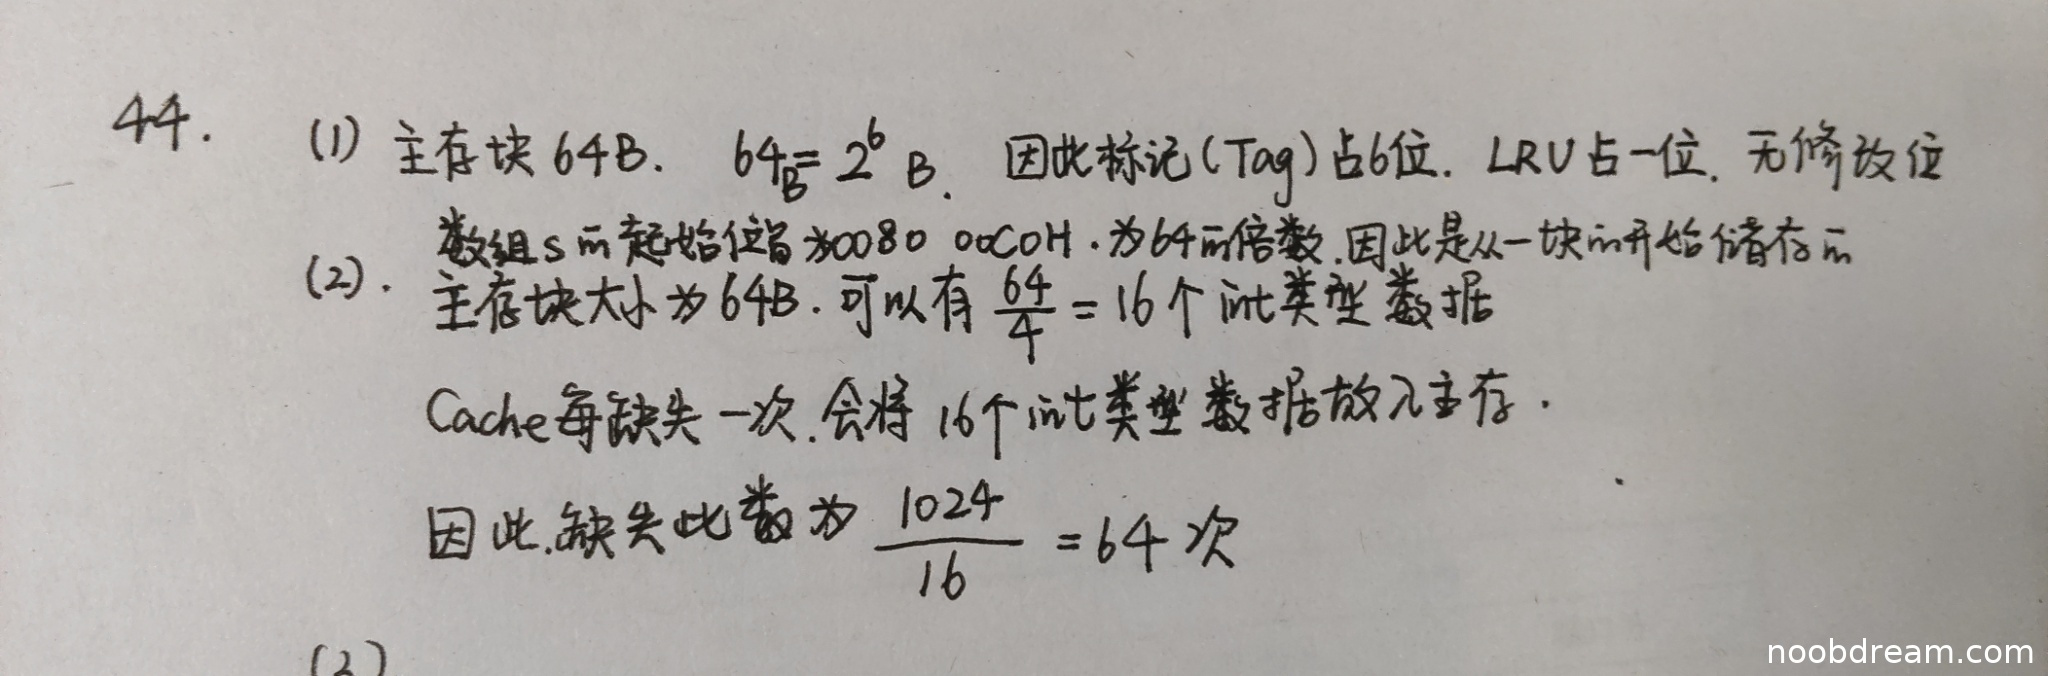 44. (1) 主存块 64B. 64B = 2⁶ B. 因此标记(Tag)占6位. LRU占一位. 无修改位
数组s的起始位置为0080 00C0H. 为64的倍数. 因此是从一块的开始储存的
(2). 主存块大小为64B. 可以有 64/4 = 16个 int类型数据
Cache每缺失一次. 会将 16个int类型数据放入主存.
因此. 缺失此数为 1024/16 = 64 次
(3)
noobdream.com